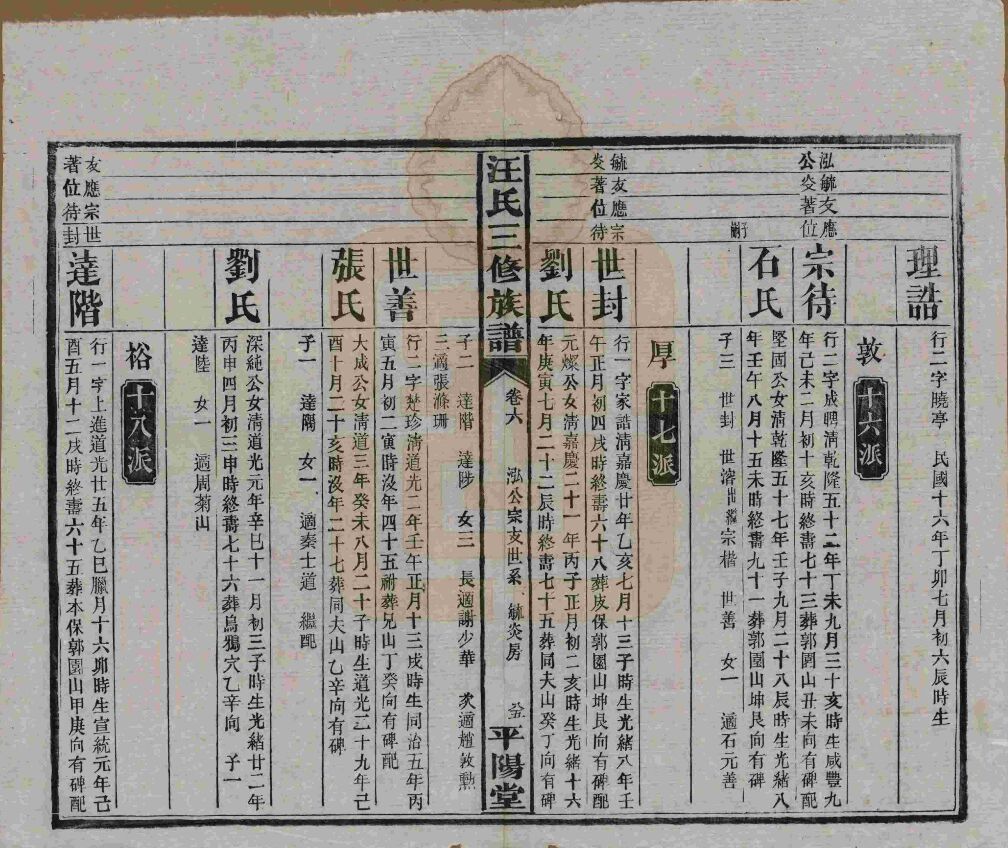 理誥
行二字曉亭 民國十六年丁卯七月初六辰時生
敦 十六派
泓毓友應
公炎著位
宗待
行二字成聘清乾隆五十二年丁未九月三十亥時生咸豐九
年己未二月初十亥時終壽七十三葬郭園山丑未向有碑配
石氏
堅固公女清乾隆五十七年壬子九月二十八辰時生光緒八
年壬午八月十五未時終壽九十一葬郭園山坤艮向有碑
子嗣
子三 世封 世溶出繼宗楷 世善 女一 適石元善
厚 十七派
毓友應宗
炎著位待
世封
行一字家誥清嘉慶廿年乙亥七月十三子時生光緒八年壬
午正月初四戌時終壽六十八葬皮保郭園山坤艮向有碑配
劉氏
元燦公女清嘉慶二十一年丙子正月初二亥時生光緒十六
年庚寅七月二十二辰時終壽七十五葬同夫山癸丁向有碑
汪氏三修族譜 卷六 泓公宗支世系 毓炎房 平陽堂
子二 達階 達陟 女三 長適謝少華 次適趙敦勳
三適張滌珊
世善
行二字楚珍清道光二年壬午正月十三戌時生同治五年丙
寅五月初二寅時沒年四十五祔葬兄山丁癸向有碑配
張氏
大成公女清道三年癸未八月二十子時生道光二十九年己
酉十月二十亥時沒年二十七葬同夫山乙辛向有碑
子一 達隅 女一 適秦士道 繼配
劉氏
深純公女清道光元年辛巳十一月初三子時生光緒廿二年
丙申四月初三申時終壽七十六葬烏鴉穴乙辛向 子一
達陸 女一 適周菊山
裕 十八派
友應宗世
著位待封
達階
行一字上進道光廿五年乙巳臘月十六卯時生宣統元年己
酉五月十二戌時終壽六十五葬本保郭園山甲庚向有碑配